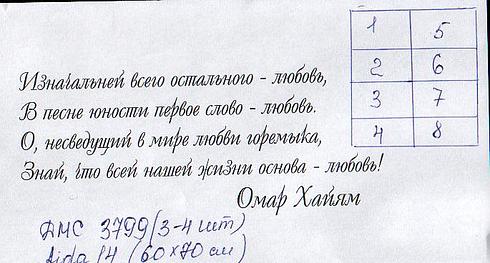 1 5
2 6
3 7
4 8
Изначальней всего остального - любовь,
В песне юности первое слово - любовь.
О, несведущий в мире любви горемыка,
Знай, что всей нашей жизни основа - любовь!
Омар Хайям
ДМС 3799 (3-4 шт)
Aida 14 (60x70 см)